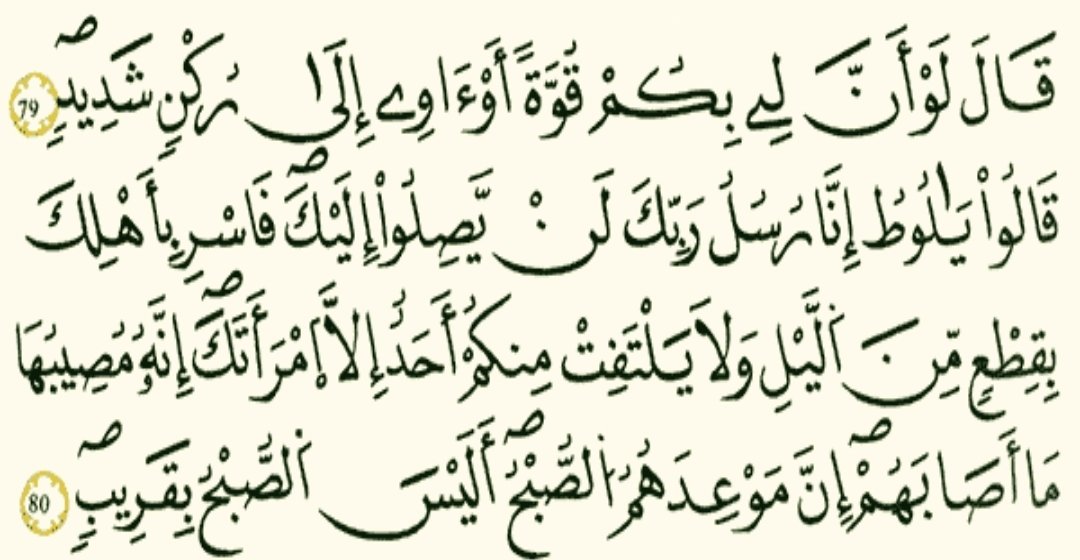 قَالَ لَوْ أَنَّ لِے بِكُمْ قُوَّةً أَوْ ءَاوِے إِلَىٰ رُكْنٍ شَدِيدٍۖ 79
قَالُواْ يَٰلُوطُ إِنَّا رُسُلُ رَبِّكَ لَنْ يَّصِلُواْ إِلَيْكَۖ فَاسْرِ بِأَهْلِكَ
بِقِطْعٍ مِّنَ اَ۬لَّيْلِ وَلَا يَلْتَفِتْ مِنكُمْ أَحَدٌ إِلَّا اَ۪مْرَأَتَكَۖ إِنَّهُۥ مُصِيبُهَا
مَا أَصَابَهُمْۖ إِنَّ مَوْعِدَهُمُ اُ۬لصُّبْحُۖ أَلَيْسَ اَ۬لصُّبْحُ بِقَرِيبٍۖ 80